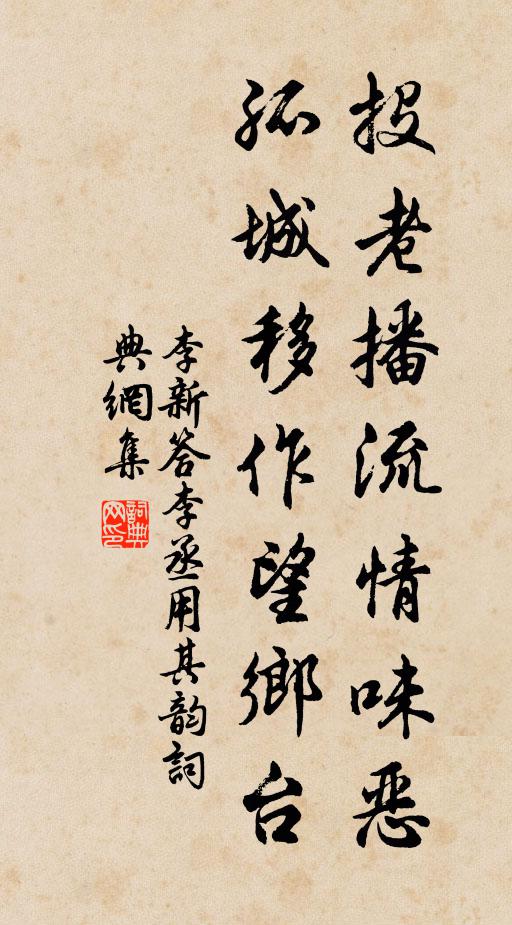 投老播流情味恶
孤城移作望鄉台
李新答李丞用其韵詞
典網集
詞典網印